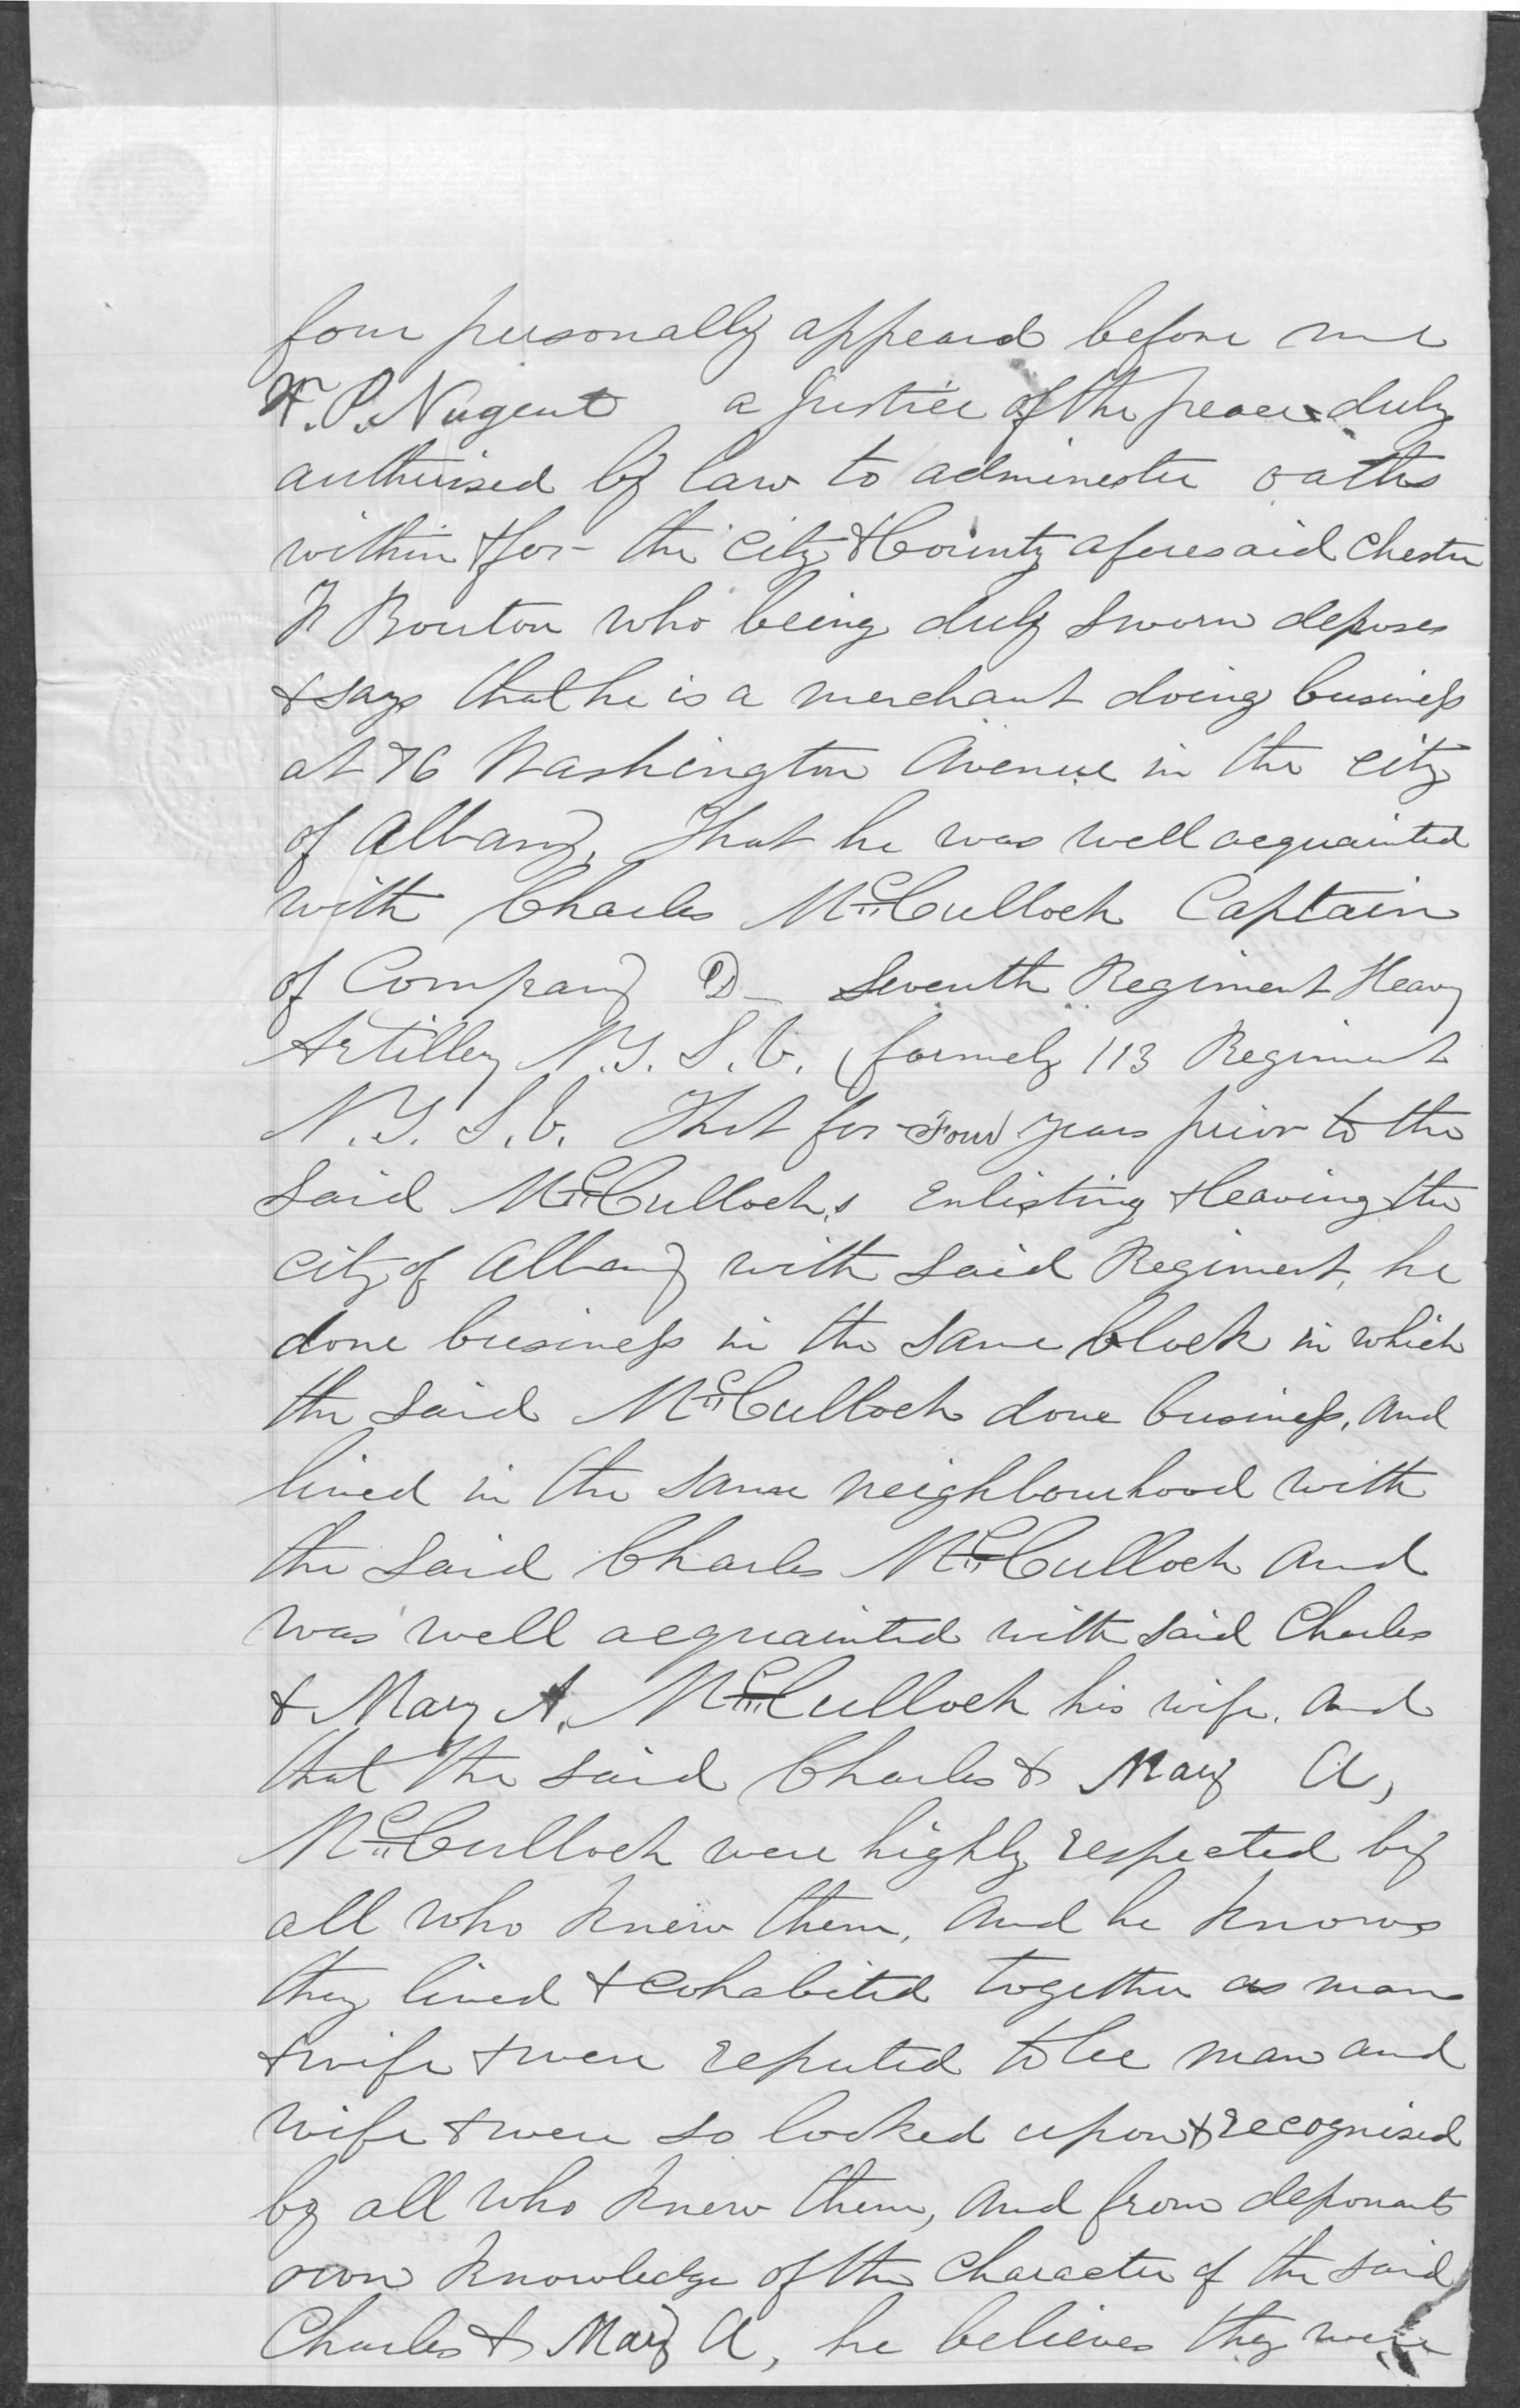 four personally appeard before me
F. P. Nugent a justice of the peace duly
authurised by law to adminester oaths
within & for the city & County aforesaid Chester
F Bouton who being duly sworn deposes
& says that he is a merchant doing business
at 76 Washington Avenue in the city
of Albany, That he was well acquainted
with Charles McCulloch Captain
of Company D Seventh Regiment Heavy
Artillery N.Y.S.V. (formely 113 Regiment
N.Y.S.V. That for Four years prior to the
said McCulloch,s enlisting & leaving the
city of Albany with said Regiment, he
done business in the same block in which
the said McCulloch done business, and
lived in the same neighbourhood with
the said Charles McCulloch and
was well acquainted with said Charles
& Mary A. McCulloch his wife. and
that the said Charles & Mary A,
McCulloch were highly respected by
all who knew them, and he knows
they lived & cohabited together as man
& wife & were reputed to be man and
wife & were so looked upon & recognised
by all who knew them, and from deponants
own knowledge of the character of the said
Charles & Mary A, he believes they were